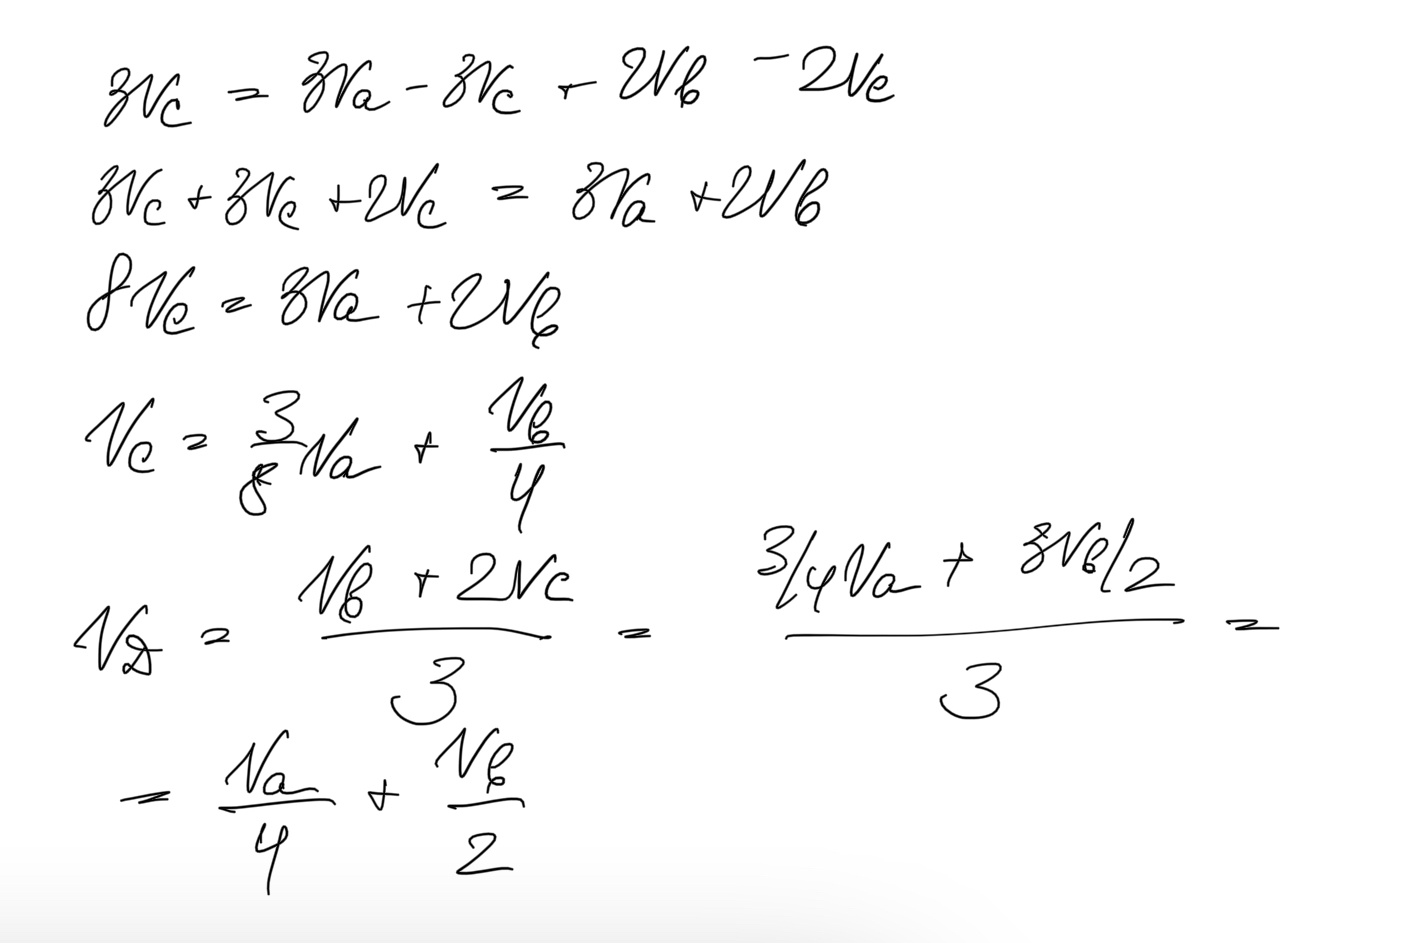 3Vc = 3Va - 3Vc + 2Vb - 2Vc
3Vc + 3Vc + 2Vc = 3Va + 2Vb
8Vc = 3Va + 2Vb
Vc = 3/8 Va + Vb/4
VD = (Vb + 2Vc)/3 = (3/4 Va + 3Vb/2)/3 =
= Va/4 + Vb/2